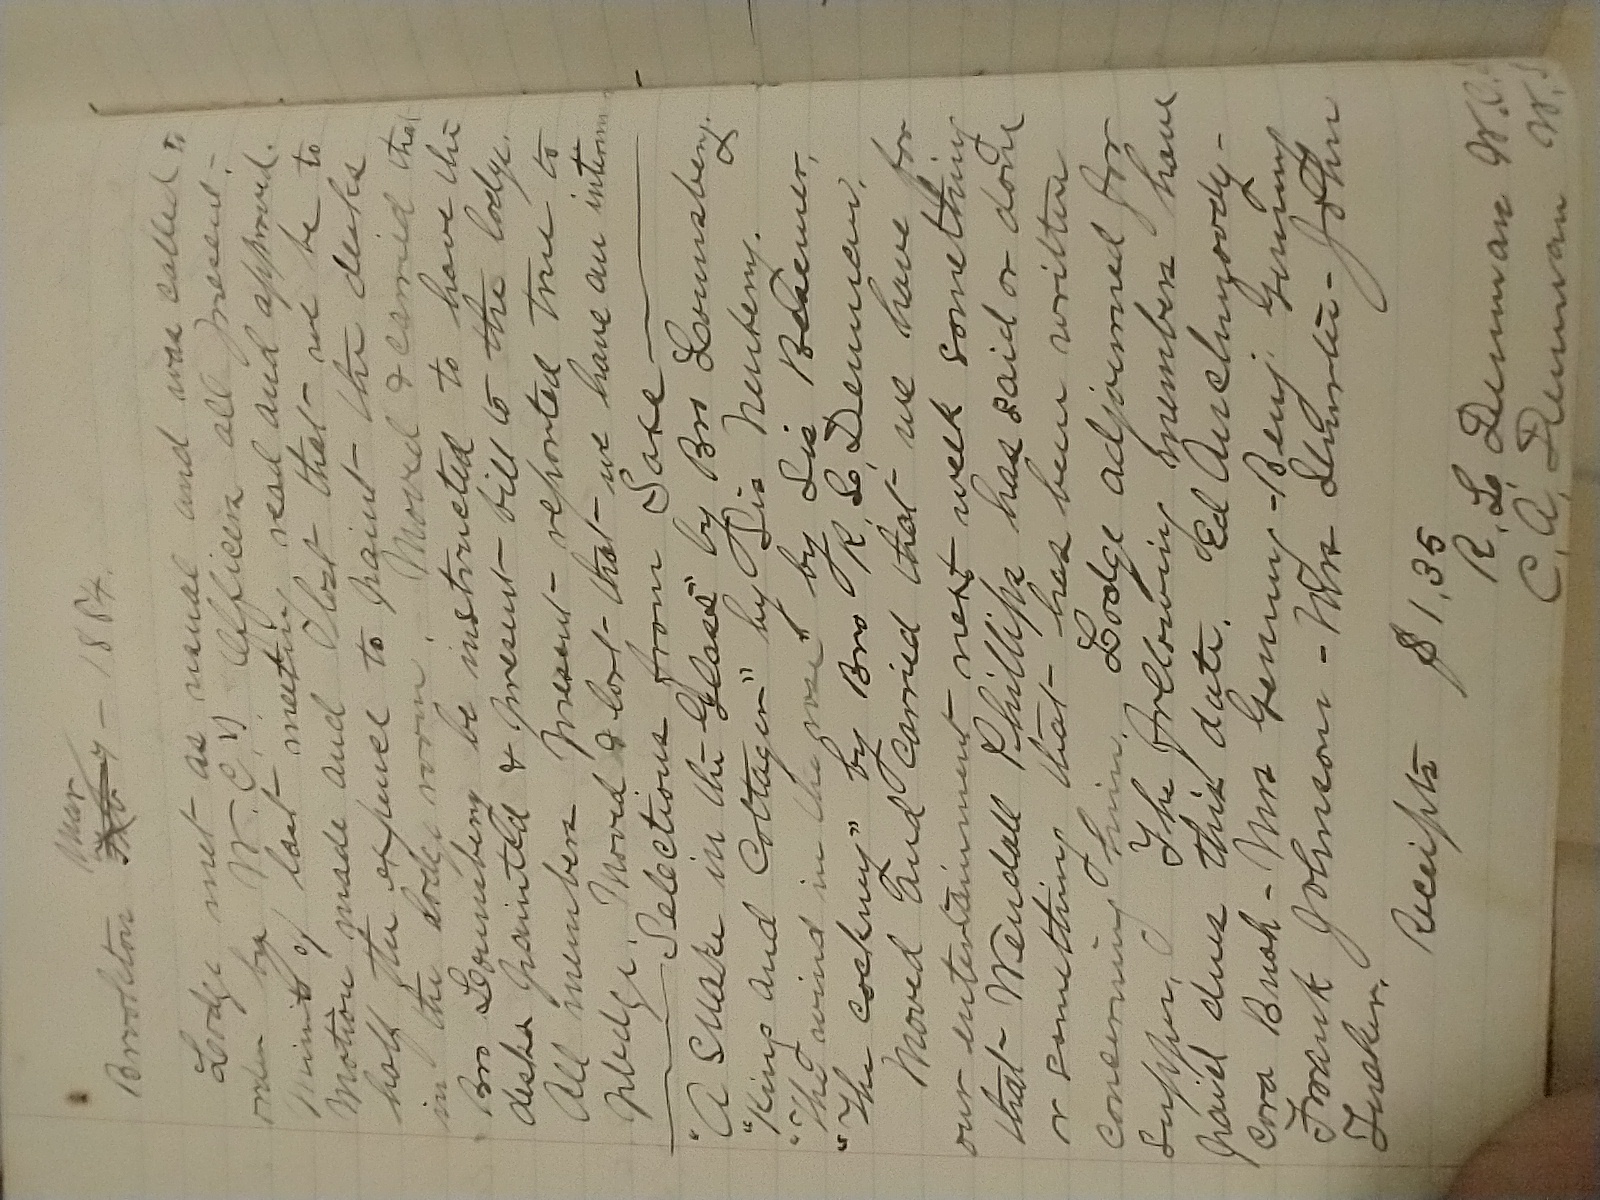 Mar
Brookton Feb 7 - 1884.
Lodge met as usual and was called to
order by W.C.T. Officers all present.
Minits of last meeting read and approved.
Motion made and lost that we be to
half the expence to paint the desks
in the lodge room. Moved & carried that
Bro Lounsbery be instructed to have the
desks painted & present bill to the lodge.
All members present reported true to
pledge. Moved & lost that we have an
Selections from Saxe
"A Snake in the Glass" by Bro Lounsbery.
"King and Cottager" by Sis Newberry.
"The wind in the rose" by Sis Besemer,
"The cockney" by Bro R. L. Denman.
Moved and carried that we have for
our entertainment next week something
that Wendall Phillips has said or done
or something that has been written
concerning him. Lodge adjourned for
supper. The following members have
paid dues this date. Ed Auchmoody -
Cora Bush - Mrs Genung - Benj. Genung
Frank Johnson - Mrs - John
Tucker.
Receipts $1.35
R. L. Denman W.C.
C. A. Denman W.